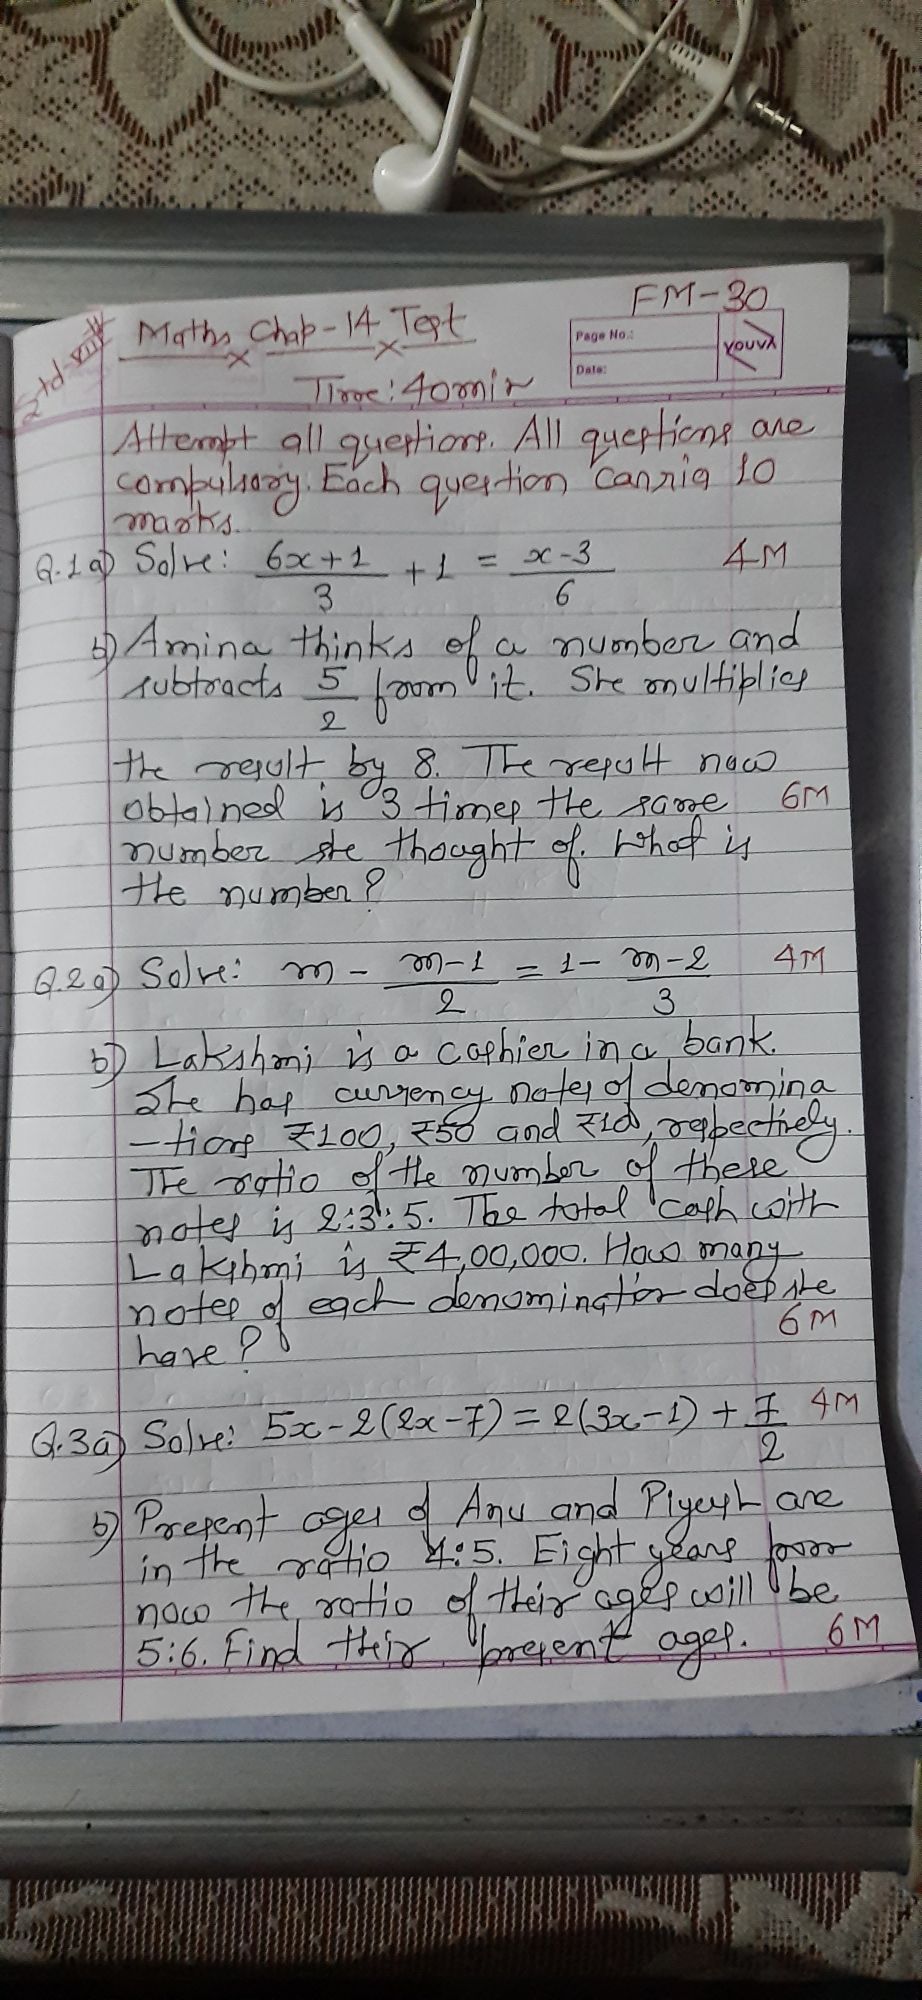 FM-30
Std-VIII
Maths Chap-14 Test
Page No.:
Date:
YOUVA
Time: 40min
Attempt all questions. All questions are
compulsory. Each question carries 10
marks.
Q.1a) Solve: (6x+1)/3 + 1 = (x-3)/6 4M
b) Amina thinks of a number and
subtracts 5/2 from it. She multiplies
the result by 8. The result now
obtained is 3 times the same 6M
number she thought of. What is
the number?
Q.2a) Solve: m - (m-1)/2 = 1 - (m-2)/3 4M
b) Lakshmi is a cashier in a bank.
She has currency notes of denomina
-tions ₹100, ₹50 and ₹10, respectively.
The ratio of the number of these
notes is 2:3:5. The total cash with
Lakshmi is ₹4,00,000. How many
notes of each denomination does she
have? 6M
Q.3a) Solve: 5x-2(2x-7) = 2(3x-1) + 7/2 4M
b) Present ages of Anu and Piyush are
in the ratio 4:5. Eight years from
now the ratio of their ages will be
5:6. Find their present ages. 6M